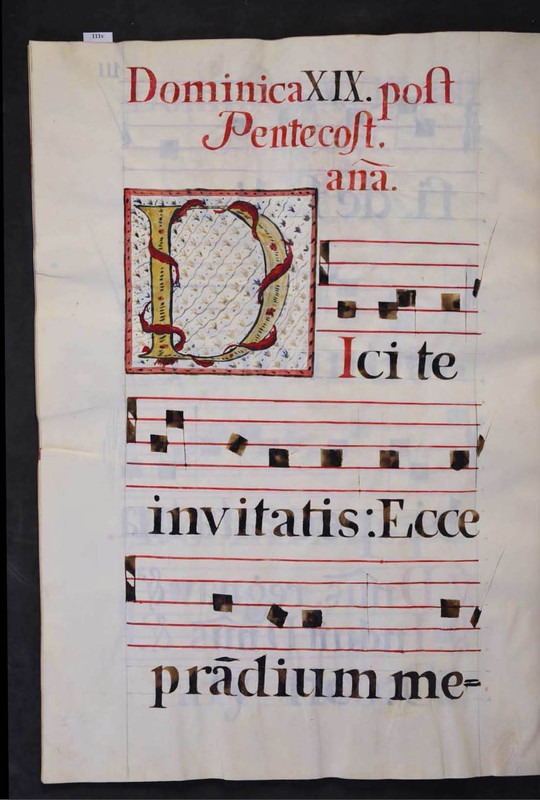 111v
Dominica XIX. post
Pentecost.
aña.
DIci te
invitatis: Ecce
prãdium me=